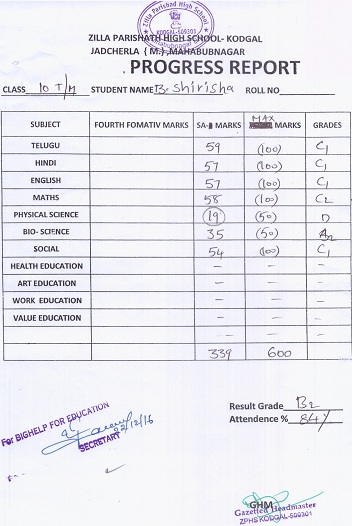 Zilla Parishad High School
KODGAL-509301
Mahabubnagar
ZILLA PARISHATH HIGH SCHOOL- KODGAL
JADCHERLA ( M ) ,MAHABUBNAGAR
PROGRESS REPORT
CLASS 10 T/M STUDENT NAME B. Shirisha ROLL NO
SUBJECT FOURTH FOMATIV MARKS SA- MARKS MAX MARKS GRADES
TELUGU 59 (100) C1
HINDI 57 (100) C1
ENGLISH 57 (100) C1
MATHS 58 (100) C2
PHYSICAL SCIENCE 19 (50) D
BIO- SCIENCE 35 (50) B2
SOCIAL 54 (100) C1
HEALTH EDUCATION - - -
ART EDUCATION - - -
WORK EDUCATION - - -
VALUE EDUCATION - - -
- - -
339 600
Result Grade B2
Attendence % 84%
For BIGHELP FOR EDUCATION
22/12/16
SECRETARY
GHM
Gazetted Headmaster
ZPHS KODGAL-509301